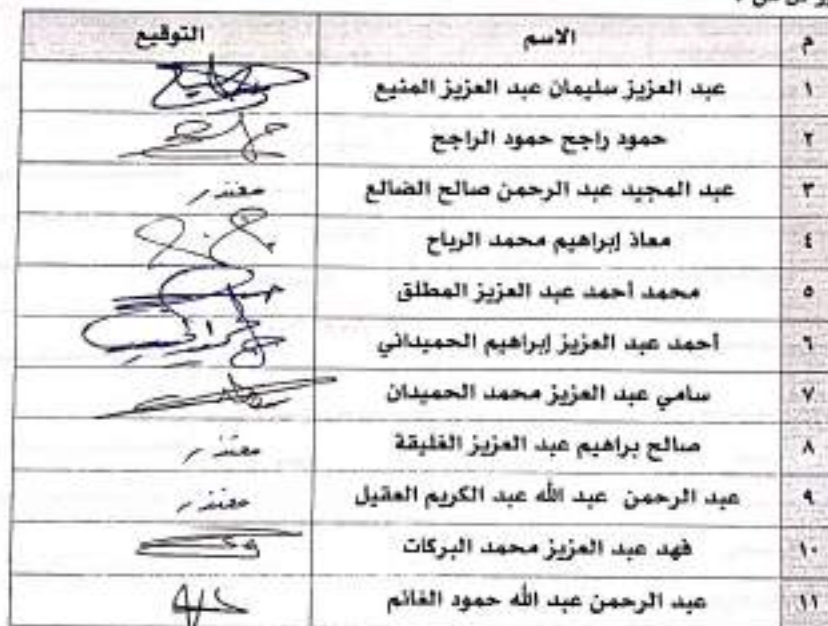 م الاسم التوقيع
١ عبد العزيز سليمان عبد العزيز المنيع
٢ حمود راجح حمود الراجح
٣ عبد المجيد عبد الرحمن صالح الضالع معتذر
٤ معاذ إبراهيم محمد الرباح
٥ محمد أحمد عبد العزيز المطلق
٦ أحمد عبد العزيز إبراهيم الحميداني
٧ سامي عبد العزيز محمد الحميدان
٨ صالح براهيم عبد العزيز الغليقة معتذر
٩ عبد الرحمن عبد الله عبد الكريم العقيل معتذر
١٠ فهد عبد العزيز محمد البركات
١١ عبد الرحمن عبد الله حمود الغانم